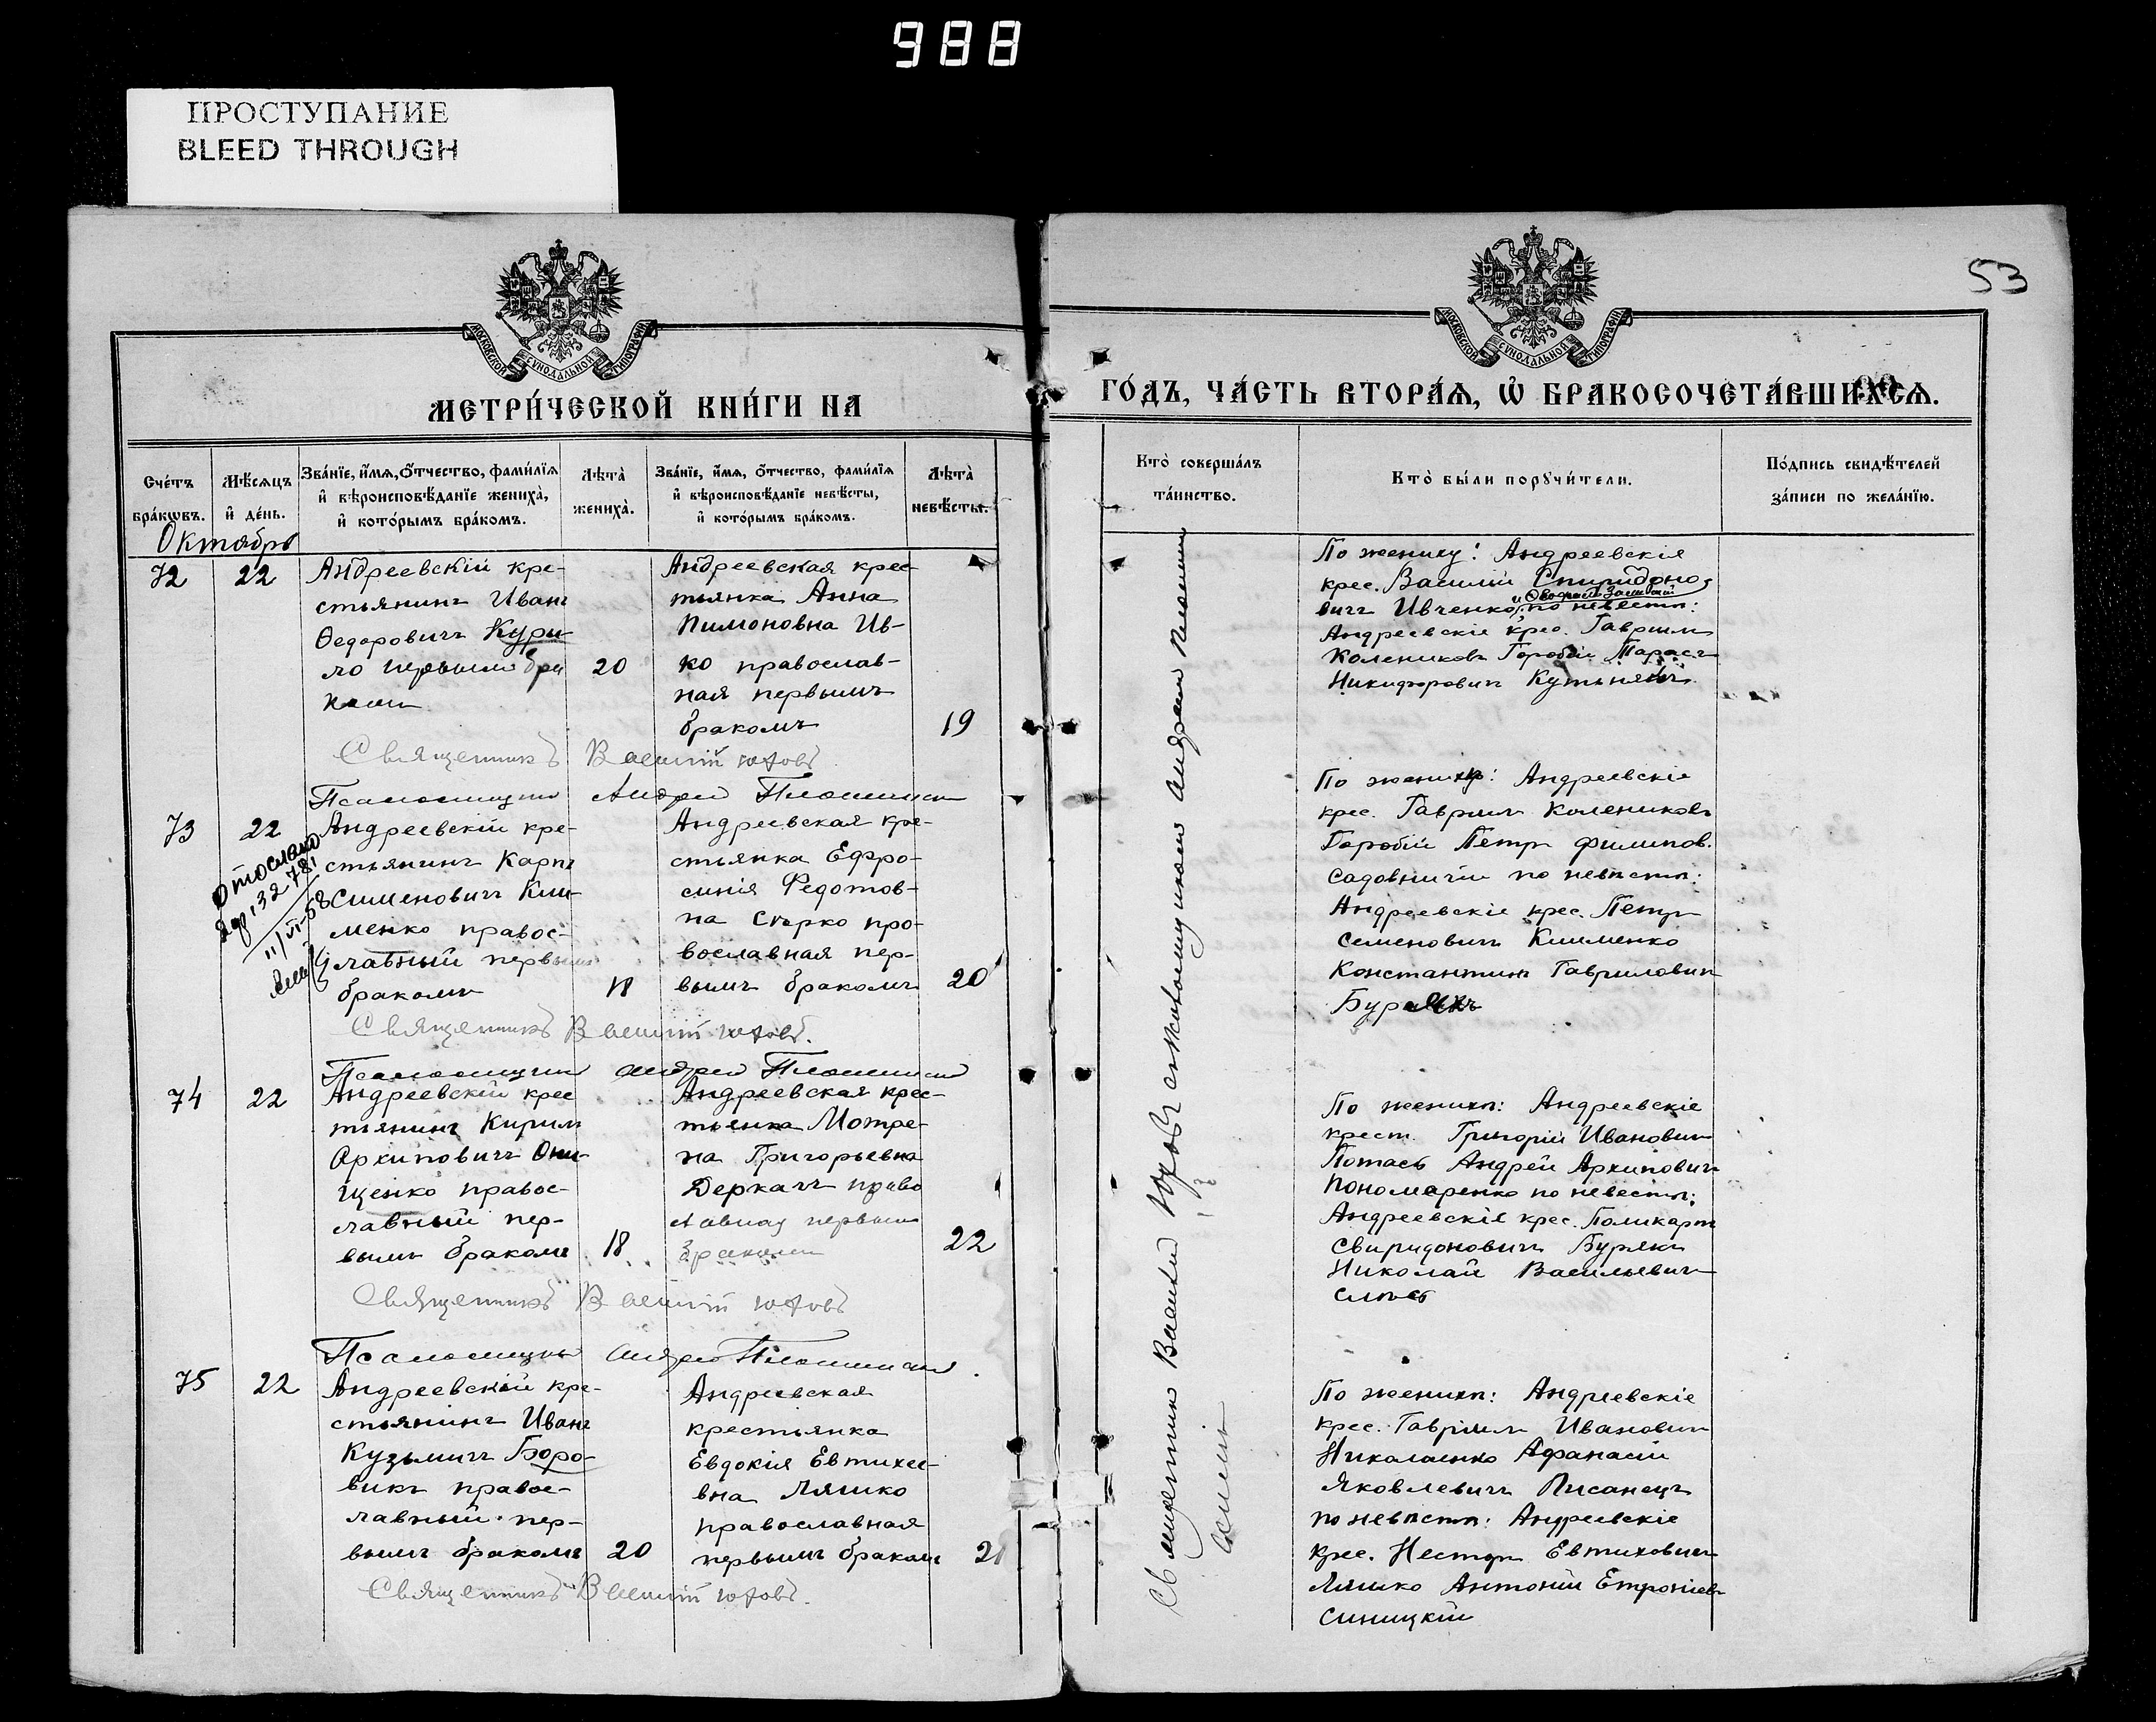 988
ПРОСТУПАНИЕ
BLEED THROUGH
53
МОСКОВСКОЙ СѴНОДАЛЬНОЙ ТИПОГРАФІИ
МОСКОВСКОЙ СѴНОДАЛЬНОЙ ТИПОГРАФІИ
МЕТРИ́ЧЕСКОЙ КНИ́ГИ НА
ГО́ДЪ, ЧА́СТЬ ВТОРА́Ѧ, Ѡ҆ БРАКОСОЧЕТА́ВШИХСѦ.
Сче́тъ бра́кѡвъ.
Мѣ́сяцъ и҆ де́нь.
Зва́нїе, и҆́мѧ, ѻ҆́тчество, фами́лїѧ
и҆ вѣроисповѣ́данїе жениха̀,
и҆ кото́рымъ бра́комъ.
Лѣта̀ жениха̀.
Зва́нїе, и҆́мѧ, ѻ҆́тчество, фами́лїѧ
и҆ вѣроисповѣ́данїе невѣ́сты,
и҆ кото́рымъ бра́комъ.
Лѣта̀ невѣ́сты.
Кто̀ соверша́лъ
та́инство.
Кто̀ бы́ли порꙋчи́тели.
По́дпись свидѣ́телей
за́писи по жела́нїю.
Октябрь
72
22
Андреевскій кре-
стьянинъ Иванъ
Федоровичъ Кури-
ло первымъ бра
комъ
20
Андреевская крес
тьянка Анна
Пимоновна Ив-
ко православ-
ная первымъ
бракомъ
19
По жениху: Андреевскіе
крес. Василій Спиридоно-
вичъ Ивченко по невесте:
Андреевскіе крес. Гавриилъ
Колениковъ Горобій Тарасъ
Никифоровичъ
Священникъ Василій Юховъ
Псаломщикъ Андрей
73
22
отослано
11/VI-58
Андреевскій кре-
стьянинъ Карпъ
Сименовичъ Кли-
менко правос-
лавный первымъ
бракомъ
18
Андреевская кре-
стьянка Ефро-
синія Федотов-
на Сѣрко про-
вославная пер-
вымъ бракомъ
20
По жениху: Андреевскіе
крес. Гавриилъ Колениковъ
Горобій Петръ Филипов.
Садовничій по невѣстѣ:
Андреевскіе крес. Петръ
Семеновичъ Клименко
Константинъ Гавриловичъ
Бурякъ
Священникъ Василій Юховъ.
Псаломщикъ Андрей
74
22
Андреевскій крес
тьянинъ Кирилъ
Архиповичъ Они-
щенко правос-
лавный пер-
вымъ бракомъ
18
Андреевская крес-
тьянка Мотре-
на Григорьевна
Деркачъ право
славная первымъ
бракомъ
22
По женихѣ: Андреевскіе
крест. Григорій Ивановичъ
Потась Андрей Архиповичъ
Пономаренко по невестѣ:
Андреевскіе крес. Поликарпъ
Свиридоновичъ Бурякъ
Николай Васильевичъ
Священникъ Василій Юховъ
Псаломщикъ Андрей
75
22
Андреевскій кре-
стьянинъ Иванъ
Кузьмичъ Боро-
викъ правос-
лавный пер-
вымъ бракомъ
20
Андреевская
крестьянка
Евдокія Евтихее-
вна Ляшко
православная
первымъ бракомъ
21
По женихѣ: Андреевскіе
крес. Гавріилъ Ивановичъ
Николаенко Афанасій
Яковлевичъ Писанецъ
по невѣстѣ: Андреевскіе
крес. Несторъ Евтиховичъ
Ляшко Антоній
Синицкій
Священникъ Василій Юховъ.
Священникъ Василій Юховъ съ псаломщикомъ Андреемъ